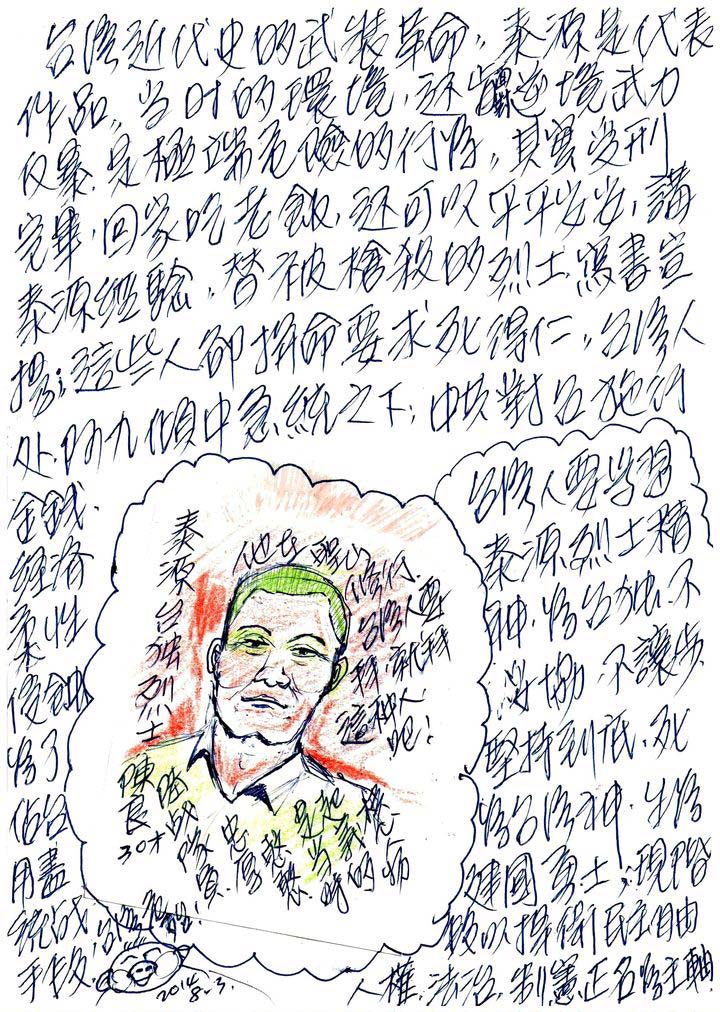 台灣近代史的武裝革命，泰源是代表
作品。当时的環境，逆境武力
反暴，是極端危險的行為，其實受刑
完畢，回家吃老飯，还可以平平安安，講
泰源經驗，替被槍殺的烈士，寫書宣
揚；這些人卻拼命要求死得仁，台灣人
处，阿九傾中急統之下，中共對台施行
金錢
經济
柔性
侵蝕
為了
佔台
用盡
統战
手段
台灣人要学習
泰源烈士精
神，為台独，不
妥協，不讓步
堅持到底，死
為台灣神，生為
建國勇士，現階
段以捍衛民主自由
人權，法治，制憲正名為主軸
泰源台独烈士
陳良
30才
台灣人要
這种人
吧！
忠厚
是他
当時的
2014
8.3.